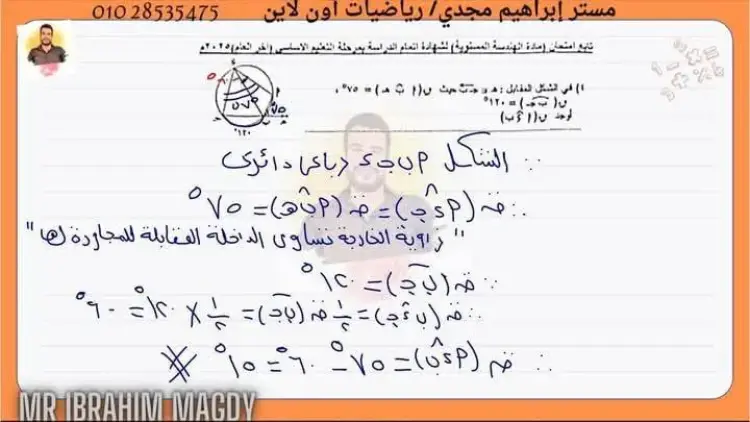 مستر إبراهيم مجدي/ رياضيات أون لاين
010 28535475
تابع امتحان (مادة الهندسة المستوية) لشهادة اتمام الدراسة بمرحلة التعليم الاساسى (آخر العام) ٢٠٢٥م
٤) في الشكل المقابل : هـ ∈ جـ ب حيث ق(أ ب̂ هـ) = ٧٥° ،
ق(ب جـ) = ١٢٠°
أوجد ق(أ ء̂ ب)
∵ الشكل أ ب جـ ء رباعى دائرى
∴ ق(أ ء̂ جـ) = ق(أ ب̂ هـ) = ٧٥°
"زاوية الخارجة تساوى الداخلة المقابلة للمجاورة لها"
∵ ق(ب جـ) = ١٢٠°
∴ ق(ب ء̂ جـ) = ½ ق(ب جـ) = ½ × ١٢٠° = ٦٠°
∴ ق(أ ء̂ ب) = ٧٥° - ٦٠° = ١٥°
MR IBRAHIM MAGDY